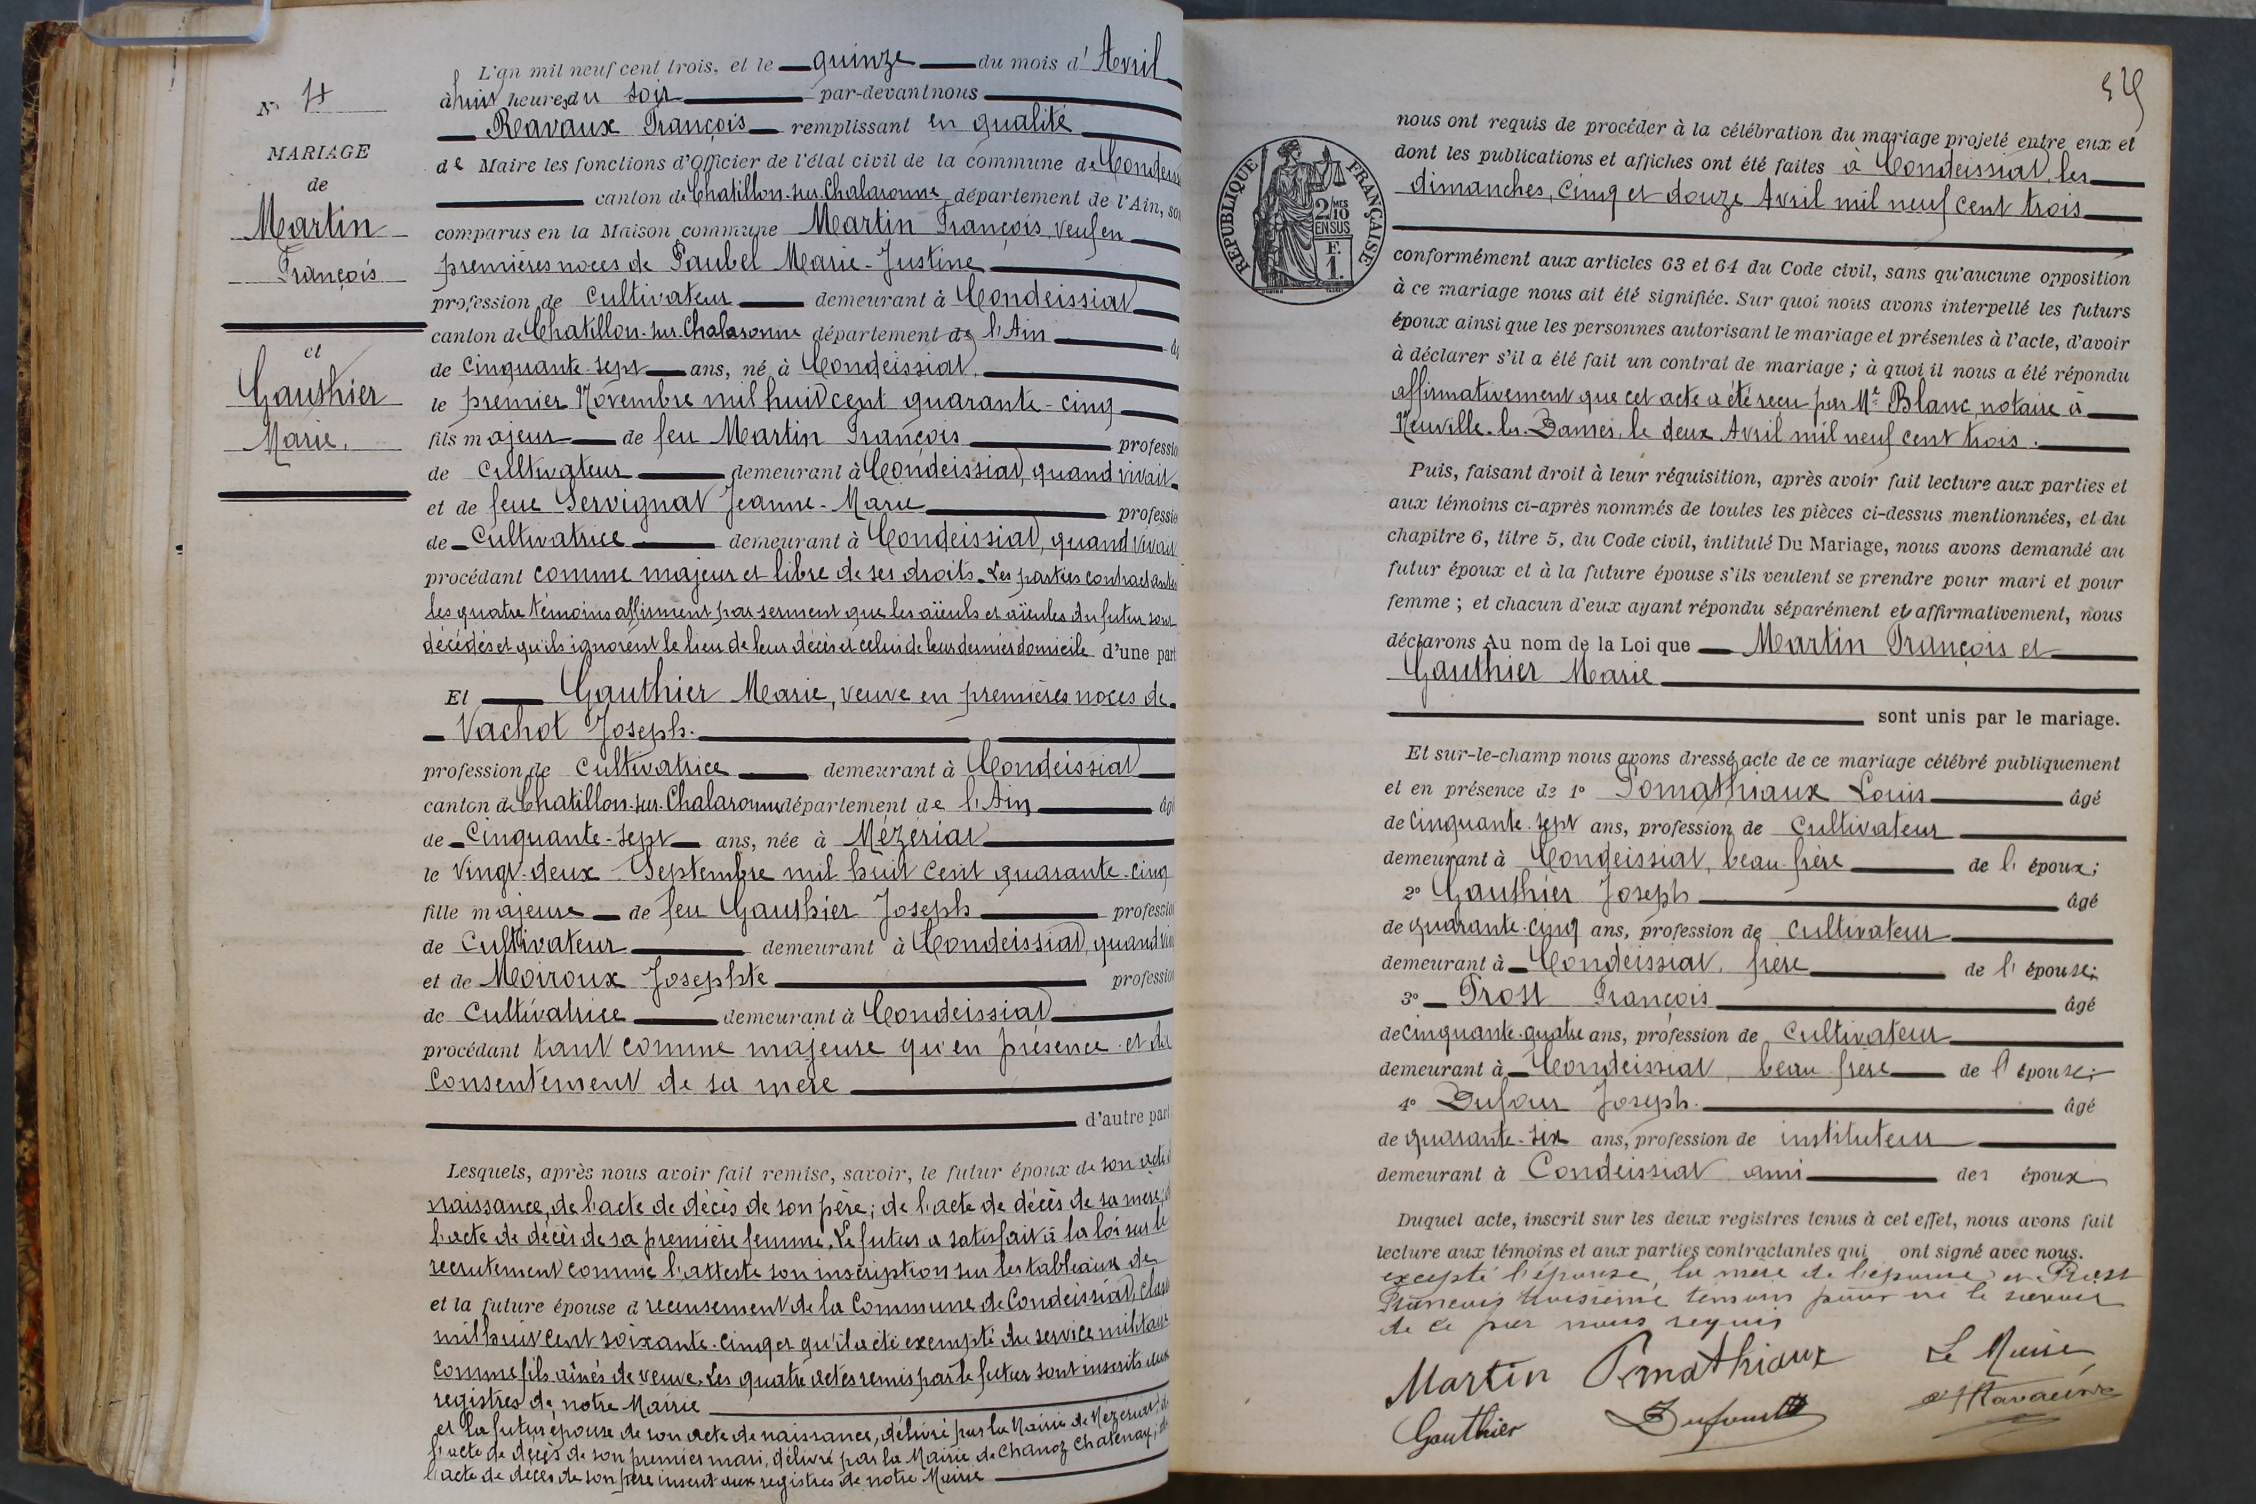 N° 4
MARIAGE
de
Martin
François
et
Gauthier
Marie.
L'an mil neuf cent trois, et le quinze du mois d'Avril
à huit heures du soir par-devant nous
Ravaux François remplissant en qualité
de Maire les fonctions d'Officier de l'état civil de la commune de Condeiss
canton de Chatillon-sur-Chalaronne, département de l'Ain, so
comparus en la Maison commune Martin François, veuf en
premières noces de Paubel Marie-Justine
profession de cultivateur demeurant à Condeissiat
canton de Chatillon-sur-Chalaronne département de l'Ain
de cinquante-sept ans, né à Condeissiat,
le premier Novembre mil huit cent quarante-cinq
fils majeur de feu Martin François professio
de cultivateur demeurant à Condeissiat, quand vivait
et de feue Servignat Jeanne-Marie professio
de Cultivatrice demeurant à Condeissiat, quand vivait
procédant comme majeur et libre de ses droits. Les parties contractantes
les quatre témoins affirment par serment que les aïeuls et aïeules du futur sont
décédés et qu'ils ignorent le lieu de leur décès et celui de leur dernier domicile d'une part
Et Gauthier Marie, veuve en premières noces de
Vachot Joseph.
profession de cultivatrice demeurant à Condeissiat
canton de Chatillon-sur-Chalaronne département de l'Ain âg
de Cinquante-sept ans, née à Mézériat
le vingt-deux Septembre mil huit cent quarante-cinq
fille majeure de feu Gauthier Joseph profession
de Cultivateur demeurant à Condeissiat, quand viv
et de Moiroux Josephte profession
de Cultivatrice demeurant à Condeissiat
procédant tant comme majeure qu'en présence et du
consentement de sa mère
d'autre part
Lesquels, après nous avoir fait remise, savoir, le futur époux de son acte d
naissance, de l'acte de décès de son père; de l'acte de décès de sa mère;
l'acte de décès de sa première femme. Le futur a satisfait à la loi sur le
recrutement comme l'atteste son inscription sur les tableaux de
et la future épouse d recensement de la Commune de Condeissiat, classe
mil huit cent soixante-cinq et qu'il a été exempté du service militaire
comme fils aînés de veuve. Les quatre actes remis par le futur sont inscrits aux
registres de notre Mairie
et la future épouse de son acte de naissance, délivré par la Mairie de Mézériat; de
l'acte de décès de son premier mari, délivré par la Mairie de Chanoz Chatenay; de
l'acte de décès de son père inscrit aux registres de notre Mairie
RÉPUBLIQUE FRANÇAISE
2/10 MES
EN SUS
F.
1.
nous ont requis de procéder à la célébration du mariage projeté entre eux et
dont les publications et affiches ont été faites à Condeissiat, les
dimanches, cinq et douze Avril mil neuf cent trois
conformément aux articles 63 et 64 du Code civil, sans qu'aucune opposition
à ce mariage nous ait été signifiée. Sur quoi nous avons interpellé les futurs
époux ainsi que les personnes autorisant le mariage et présentes à l'acte, d'avoir
à déclarer s'il a été fait un contrat de mariage; à quoi il nous a été répondu
affirmativement que cet acte a été reçu par Me Blanc, notaire à
Neuville-les-Dames, le deux Avril mil neuf cent trois.
Puis, faisant droit à leur réquisition, après avoir fait lecture aux parties et
aux témoins ci-après nommés de toutes les pièces ci-dessus mentionnées, et du
chapitre 6, titre 5, du Code civil, intitulé Du Mariage, nous avons demandé au
futur époux et à la future épouse s'ils veulent se prendre pour mari et pour
femme; et chacun d'eux ayant répondu séparément et affirmativement, nous
déclarons Au nom de la Loi que Martin François et
Gauthier Marie
sont unis par le mariage.
Et sur-le-champ nous avons dressé acte de ce mariage célébré publiquement
et en présence de 1° Pomathiaux Louis âgé
de cinquante-sept ans, profession de cultivateur
demeurant à Condeissiat, beau-frère de l'époux;
2° Gauthier Joseph âgé
de quarante-cinq ans, profession de cultivateur
demeurant à Condeissiat, frère de l'épouse;
3° Prost François âgé
de cinquante-quatre ans, profession de cultivateur
demeurant à Condeissiat, beau-frère de l'épouse;
4° Dufour Joseph. âgé
de quarante-six ans, profession de instituteur
demeurant à Condeissiat ami des époux
Duquel acte, inscrit sur les deux registres tenus à cet effet, nous avons fait
lecture aux témoins et aux parties contractantes qui ont signé avec nous.
excepté l'épouse, la mère de l'épouse et Prost
François troisième témoin pour ne le savoir
de ce par nous requis
Martin Pomathiaux Le Maire
Gauthier Dufour Ravaux